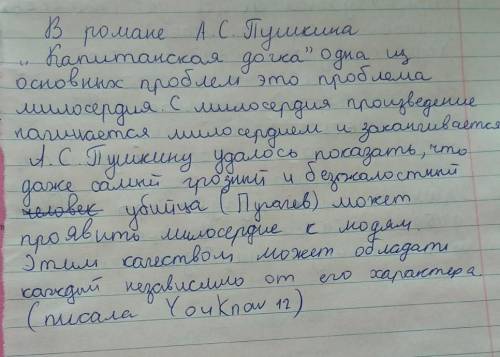 В романе А.С.Пушкина
„Капитанская дочка" одна из
основных проблем это проблема
милосердия. С милосердия произведение
начинается милосердием и заканчивается
А.С.Пушкину удалось показать, что
даже самый грозный и безжалостный
человек убийца (Пугачев) может
проявить милосердие к людям.
Этим качеством может обладать
каждый независимо от его характера
(писала YouKnow 12)